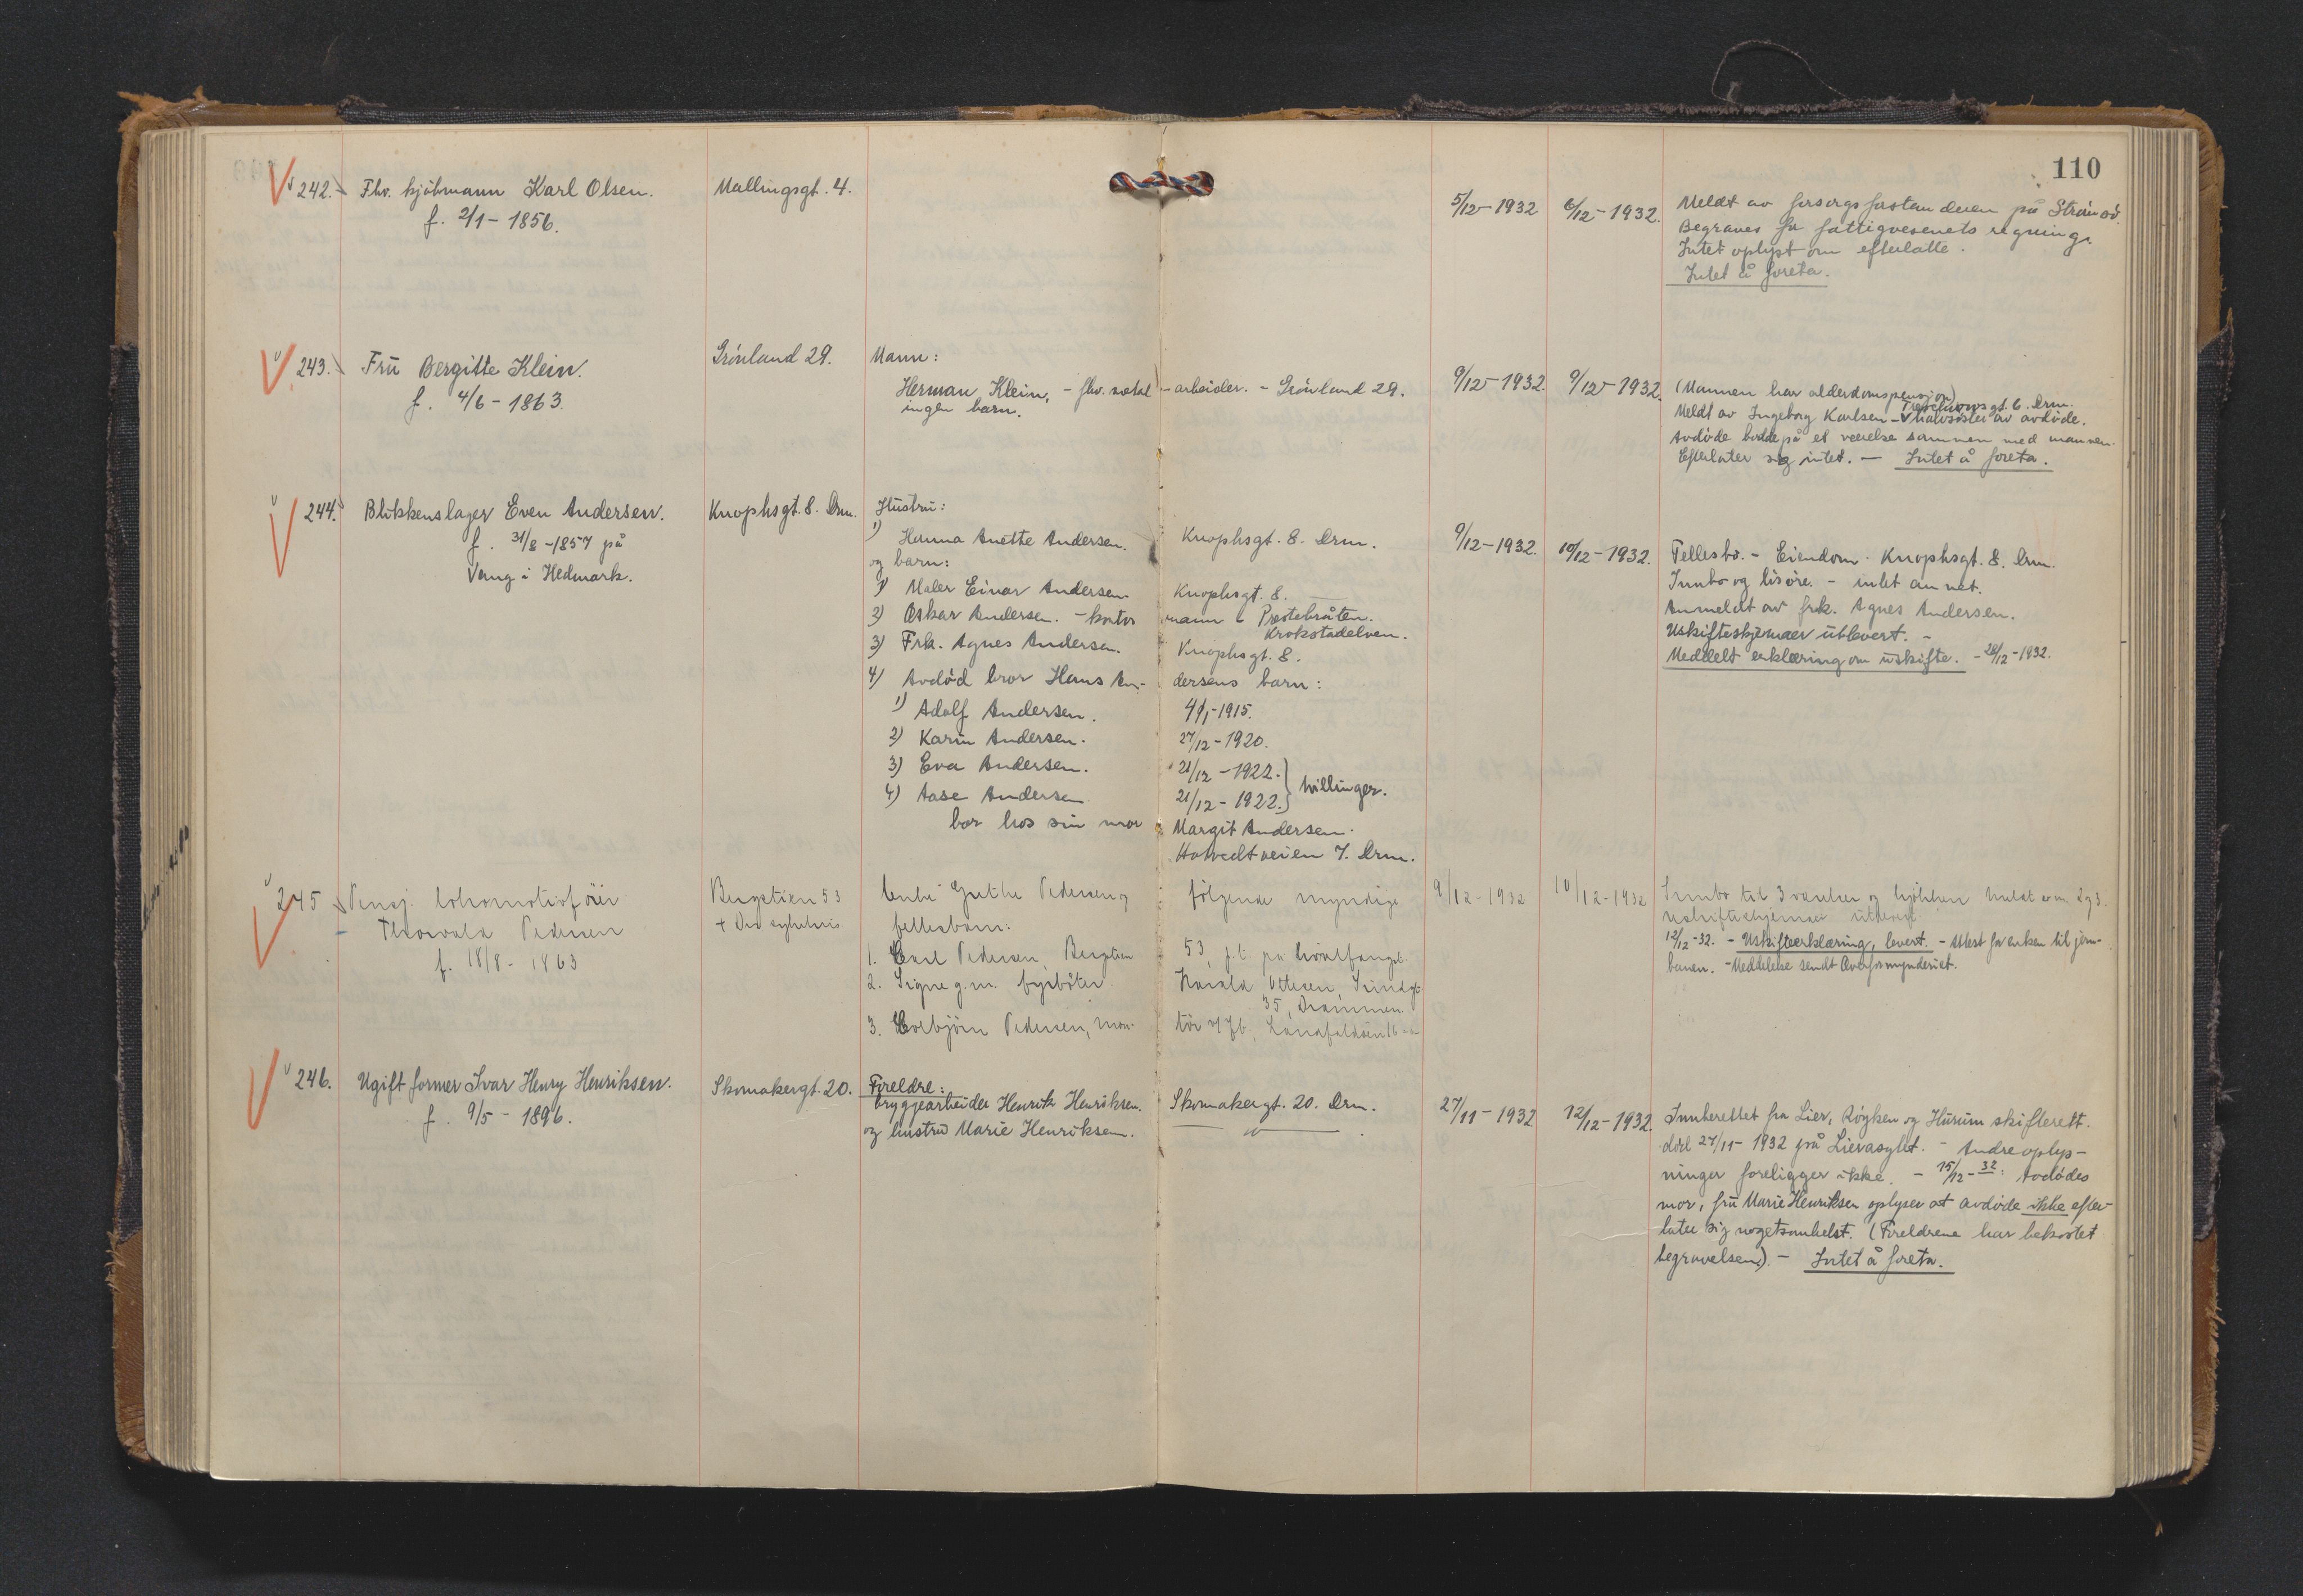 110
242. Fhv. kjøbmann Karl Olsen. Mallingsgt. 4. 5/12-1932 6/12-1932. Meldt av forsorgsforstanderen på Strømsö.
f. 2/1-1856. Begraves for fattigvesenets regning.
Intet oplyst om efterlatte.
Intet å foreta.
243. Frü Bergitte Klein. Grönland 29. Mann:
f. 4/6-1863. Herman Klein, - fhv. metal-arbeider. - Grönland 29. 9/12-1932. 9/12-1932. (Mannen har alderdomspensjon)
ingen barn. Meldt av Ingeborg Karlsen - Treschowsgt. 6. Drm. halvsöster av avdöde.
Avdöde bodde på et værelse sammen med mannen.
Efterlater sig intet. — Intet å foreta.
244. Blikkenslager Even Andersen. Knophsgt. 8. Drm. Hüstrü:
f. 31/8-1857 på
Vang i Hedmark.
1) Hanna Anette Andersen. Knophsgt. 8. Drm. 9/12-1932. 10/12-1932. Fellesbo. - Eiendom. Knophsgt. 8. Drm.
og barn: Innbo og lösöre. - intet annet.
1) Maler Einar Andersen. Knophsgt. 8. Anmeldt av frk. Agnes Andersen.
2) Oskar Andersen. - kontormann - Prestebråten. Uskifteskjemaer ütlevert. -
Krokstadelven.
3) Frk. Agnes Andersen. Knophsgt. 8. Meddelt erklæring om üskifte. - 28/12-1932.
4) Avdöd bror Hans Andersens barn:
1) Adolf Andersen. 4/1-1915.
2) Karin Andersen. 27/12-1920.
3) Eva Andersen. 21/12-1922.
4) Aase Andersen 21/12-1922. } tvillinger.
bor hos sin mor Margit Andersen.
Hotvedtveien 7. Drm.
245 Pensj. lokomotivförer Bergstien 53 Enke Grethe Pedersen og følgende myndige 9/12-1932 10/12-1932 Innbo til 3 værelser og kjökken
Thorvald Pedersen + Drs sykehus fellesbarn: uskifteskjemaer utlevert
f. 18/8-1863
12/12-32. - Uskifteerklæring, levert. - Attest for enken til jern-
banen. - Meddelelse sendt Overformynderiet.
1. Carl Pedersen, Bergstien 53, f.t. på hvalfangst
2. Signe g.m. fyrböter Harald Ottesen,
35, Drammen
3. Pedersen, mon-tör
246. Ugift former Ivar Henry Henriksen. Skomakergt. 20. Foreldre:
f. 9/5-1896. bryggearbeider Henrik Henriksen. Skomakergt. 20. Drm. 27/11-1932 12/12-1932. Innberettet fra Lier, Röyken og Hürüm skifterett.
og hustru Marie Henriksen. död 27/11-1932 på Lierasylet. - Andre oplys-
ninger foreligger ikke. - 15/12-32: Avdödes
mor, frü Marie Henriksen oplyser at avdöde ikke efter-
later sig nogetsomhelst. (Foreldrene har bekostet
begravelsen). - Intet å foreta.